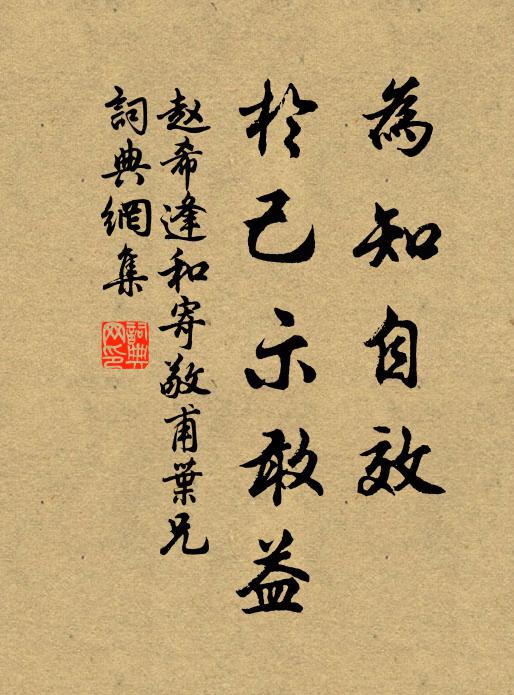 為知自效
於己示敢益
赵希逢和寄敬甫葉兄
詞典網集
詞典
网印